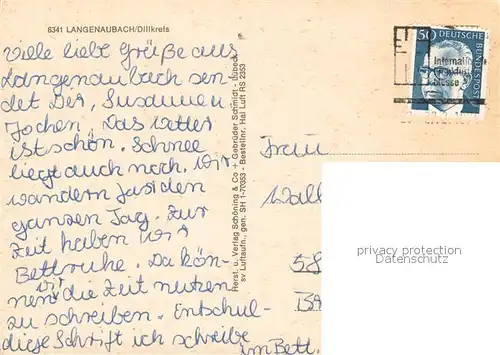 6341 LANGENAUBACH/Dillkreis
Viele liebe Grüße aus
Langenaubach sen-
det Der, Susannen
Jochen. Das Wetter
ist schön. Schnee
liegt auch noch. Wir
wandern fast den
ganzen Tag. Zur
Zeit haben wir
Bettruhe. Da kön-
nen wir die Zeit nutzen
zu schreiben. Entschul-
diese Schrift ich schreibe
im Bett.
Herst. u. Verlag Schöning & Co + Gebrüder Schmidt - Lübeck
sv Luftaufn., gen. SH 1-70/53 - Bestellnr. Hal Luft RS 2353
50 DEUTSCHE
BUNDESPOST
Internationale
Frankfurter
Messe
Frau
Wall
58
privacy protection
Datenschutz